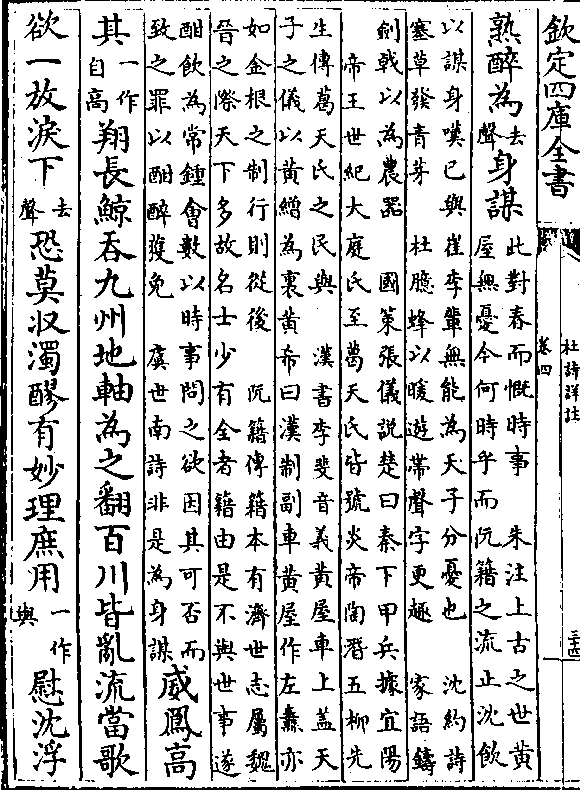 欽定四庫全書
杜詩詳注
卷四
熟醉為去聲身謀
此對春而慨時事　朱注上古之世黄
屋無憂今何時乎而阮籍之流止沈飲
以謀身嘆已與崔李輩無能為天子分憂也　沈約詩
塞草發青芽　杜臆蜂以暖遊帶聲字更趣　家語鑄
劍戟以為農器　國策張儀説楚曰秦下甲兵據宜陽
帝王世紀大庭氏至葛天氏皆號炎帝陶潛五柳先
生傳葛天氏之民與　漢書李斐音義黄屋車上蓋天
子之儀以黄繒為裏黄希曰漢制副車黄屋作左纛亦
如金根之制行則從後　阮籍傳籍本有濟世志屬魏
晉之際天下多故名士少有全者籍由是不與世事遂
酣飲為常鍾會數以時事問之欲因其可否而
致之罪以酣醉獲免　虞世南詩非是為身謀
威鳳高
其一作自高翔長鯨吞九州地軸為之翻百川皆亂流當歌
欲一放淚下去聲恐莫收濁醪有妙理庶用一作與慰沈浮